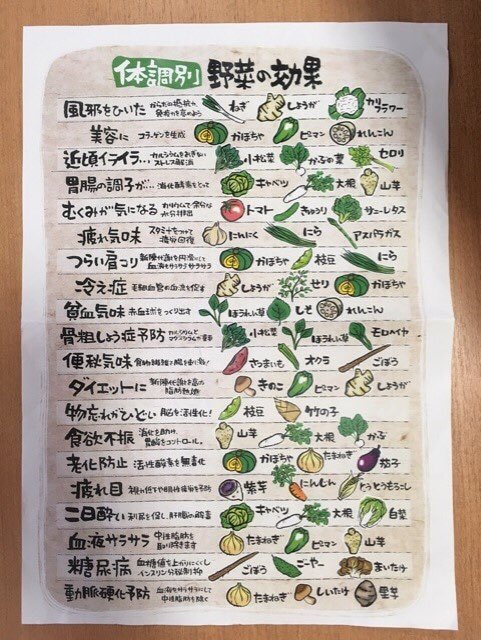 体調別 野菜の効果
風邪をひいた からだの抵抗力、免疫力を高めよう ねぎ しょうが カリフラワー
美容に コラーゲンを生成 かぼちゃ ピーマン れんこん
近頃イライラ… カルシウムをおぎない ストレス解消 小松菜 かぶの葉 セロリ
胃腸の調子が… 消化酵素をとって キャベツ 大根 山芋
むくみが気になる カリウムで余分な水分排出 トマト きゅうり サニーレタス
疲れ気味 スタミナをつけて疲労回復 にんにく にら アスパラガス
つらい肩コリ 新陳代謝を円滑にして血液をサラサラサラサラ かぼちゃ 枝豆 にら
冷え症 毛細血管の血流を促す しょうが せり かぼちゃ
貧血気味 赤血球をつくり出す ほうれい草 しそ れんこん
骨粗しょう症予防 カルシウムとマグネシウムが重要 小松菜 ほうれい草 モロヘイヤ
便秘気味 食物繊維で腸を さつまいも オクラ ごぼう
ダイエットに 新陳代謝を高め脂肪燃焼 きのこ ピーマン しょうが
物忘れがひどい 脳を活性化! 枝豆 竹の子
食欲不振 消化を助け、胃酸をコントロール。 山芋 大根 かぶ
老化防止 活性酸素を無毒化 かぼちゃ たまねぎ 茄子
疲れ目 視力低下や眼性疲労を予防 紫芋 にんじん とうもろこし
二日酔い 利尿を促し、肝臓の解毒 キャベツ 大根 白菜
血液サラサラ 中性脂肪を取り除きます たまねぎ ピーマン 山芋
糖尿病 血糖値を上がりにくくし インスリン分泌制抑 ごぼう ごーやー まいたけ
動脈硬化予防 血液をサラサラにして中性脂肪を除く たまねぎ しいたけ 里芋